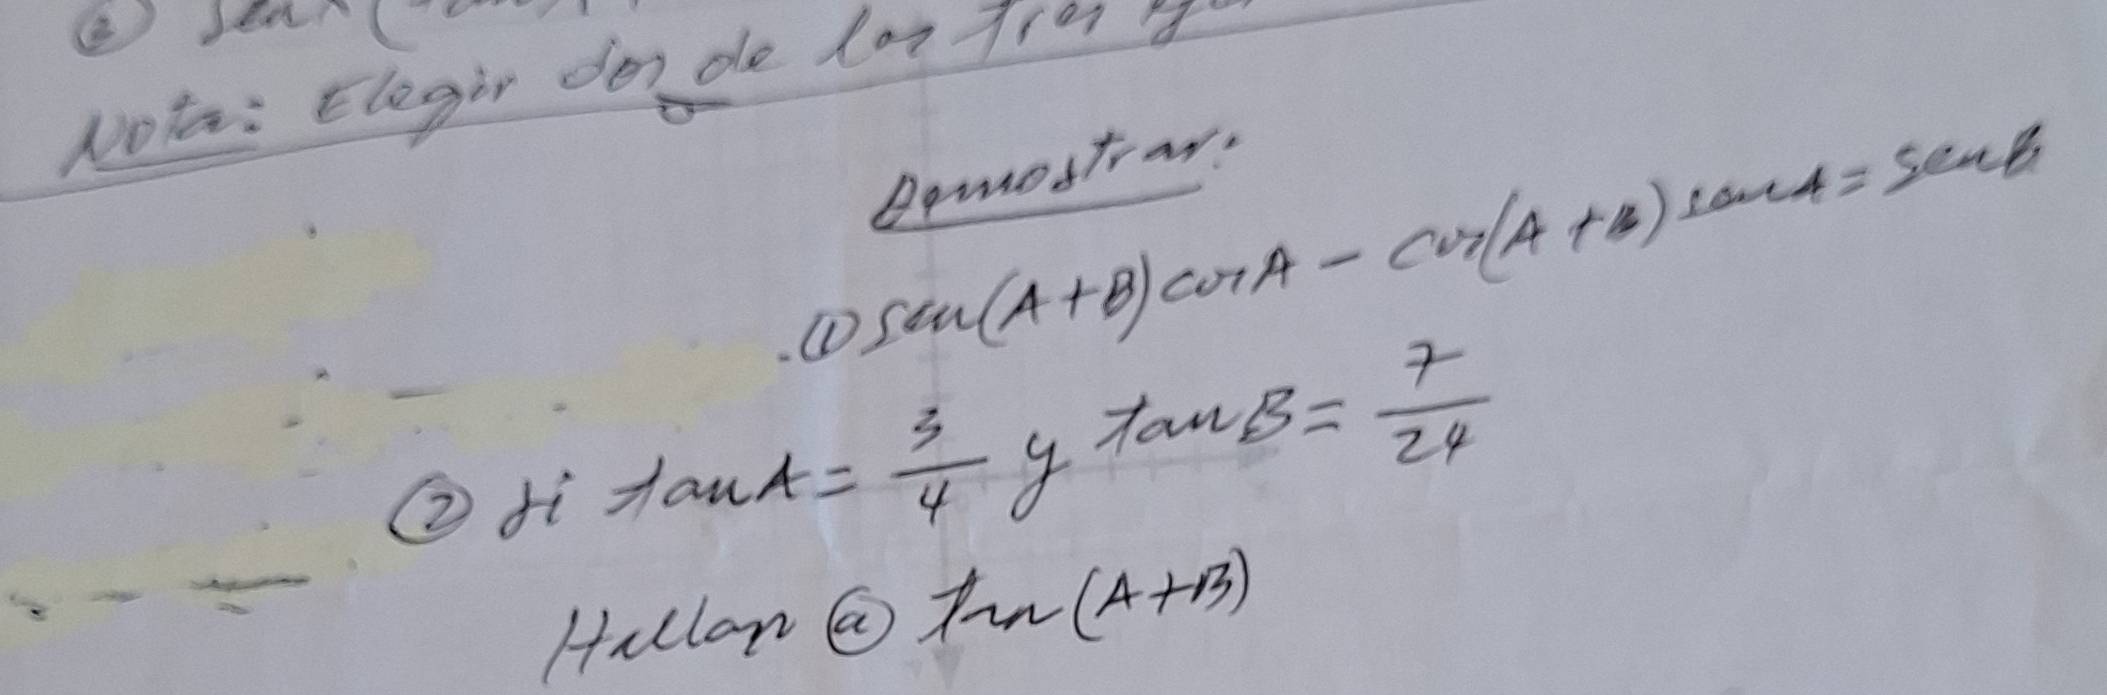 ② senx (
Nota: Elegir dos de los tres
Demostrar:
① sen(A+B)cosA - cos(A+B)senA = senB
② si tanA = 3/4 y tanB = 7/24
Hallar ⓐ tan(A+B)